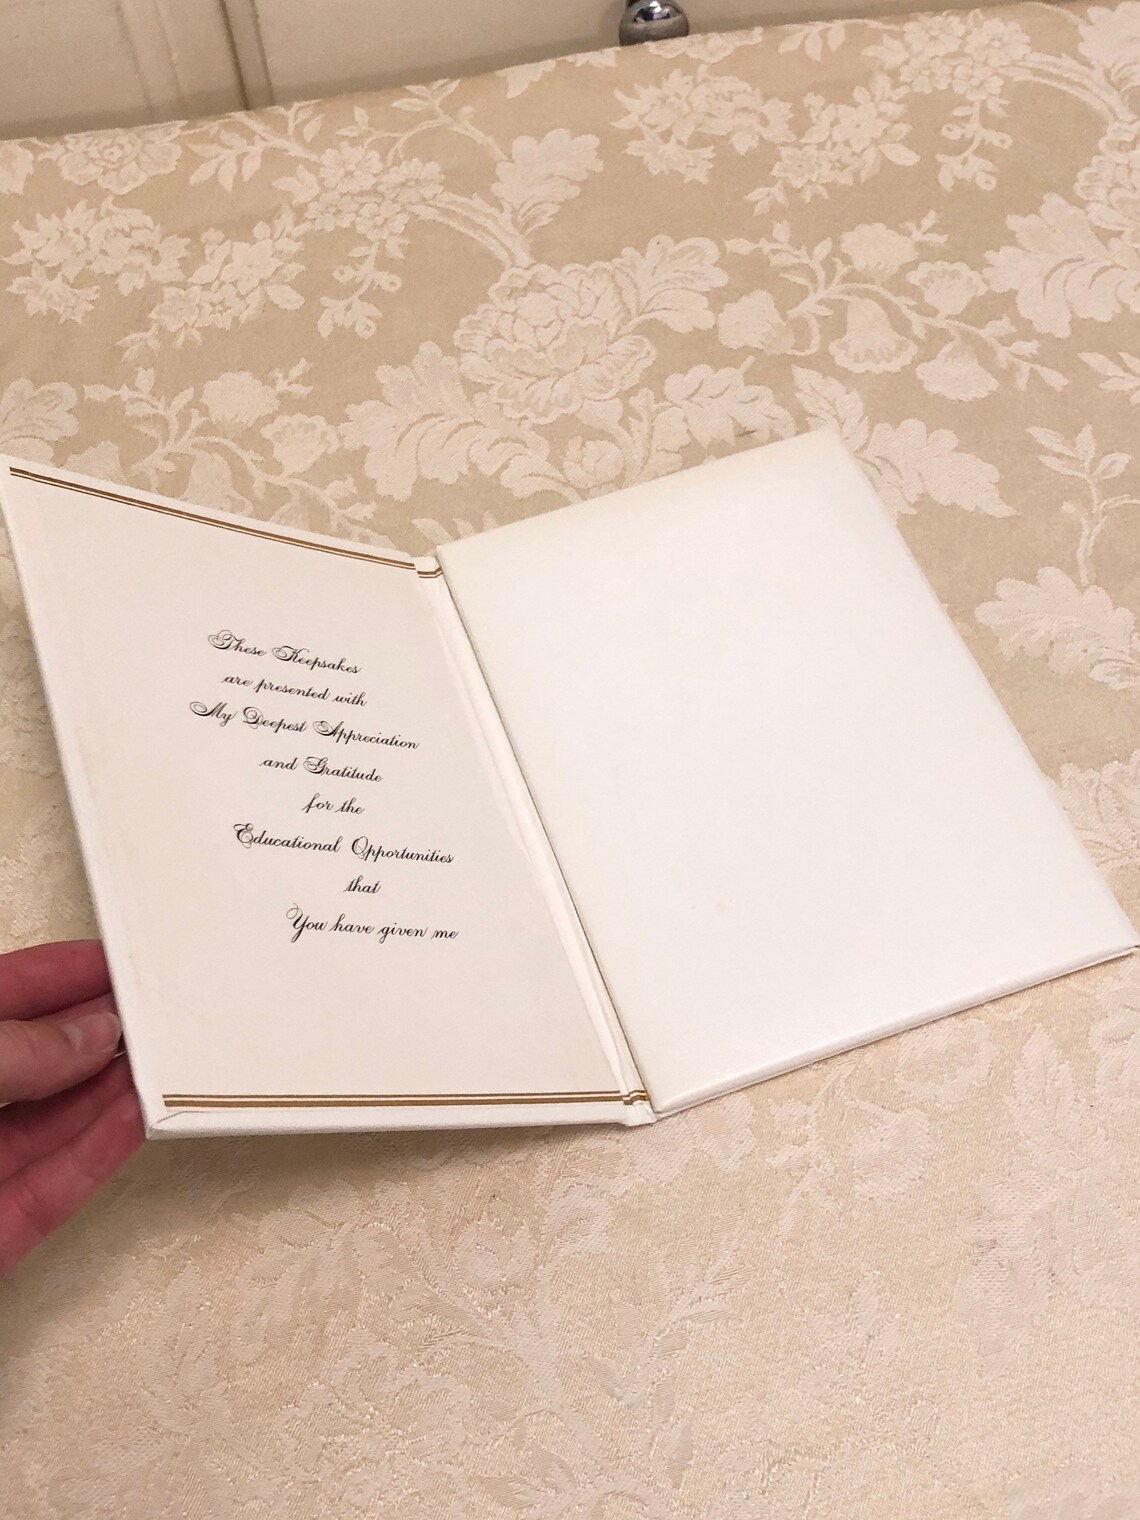 These Keepsakes
are presented with
My Deepest Appreciation
and Gratitude
for the
Educational Opportunities
that
You have given me